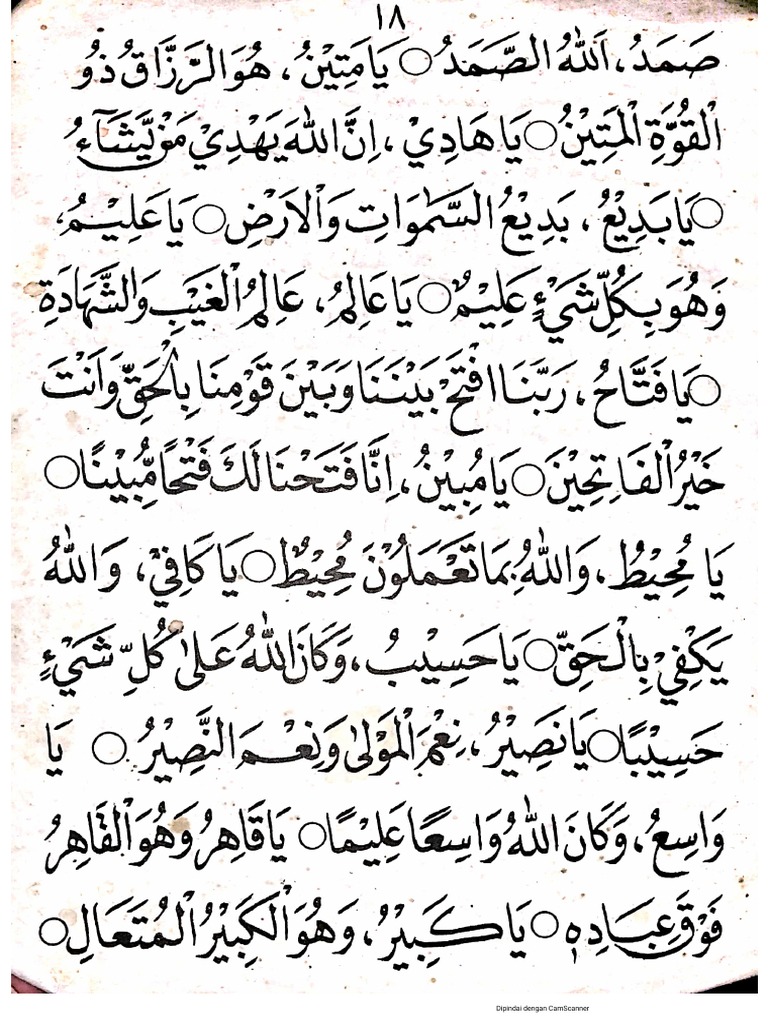 ١٨
صَمَدُ، اَللّٰهُ الصَّمَدُ ○ يَا مَتِيْنُ، هُوَ الرَّزَّاقُ ذُو
الْقُوَّةِ الْمَتِيْنُ ○ يَا هَادِيْ، اِنَّ اللّٰهَ يَهْدِيْ مَنْ يَّشَآءُ
○ يَا بَدِيْعُ، بَدِيْعُ السَّمٰوَاتِ وَالْاَرْضِ ○ يَا عَلِيْمُ،
وَهُوَ بِكُلِّ شَيْءٍ عَلِيْمٌ ○ يَا عَالِمُ، عَالِمُ الْغَيْبِ وَالشَّهَادَةِ
○ يَا فَتَّاحُ، رَبَّنَا افْتَحْ بَيْنَنَا وَبَيْنَ قَوْمِنَا بِالْحَقِّ وَاَنْتَ
خَيْرُ الْفَاتِحِيْنَ ○ يَا مُبِيْنُ، اِنَّا فَتَحْنَا لَكَ فَتْحًا مُّبِيْنًا ○
يَا مُحِيْطُ، وَاللّٰهُ بِمَا تَعْمَلُوْنَ مُحِيْطٌ ○ يَا كَافِيْ، وَاللّٰهُ
يَكْفِيْ بِالْحَقِّ ○ يَا حَسِيْبُ، وَكَانَ اللّٰهُ عَلٰى كُلِّ شَيْءٍ
حَسِيْبًا ○ يَا نَصِيْرُ، نِعْمَ الْمَوْلٰى وَنِعْمَ النَّصِيْرُ ○ يَا
وَاسِعُ، وَكَانَ اللّٰهُ وَاسِعًا عَلِيْمًا ○ يَا قَاهِرُ وَهُوَ الْقَاهِرُ
فَوْقَ عِبَادِهٖ ○ يَا كَبِيْرُ، وَهُوَ الْكَبِيْرُ الْمُتَعَالِ ○
Dipindai dengan CamScanner